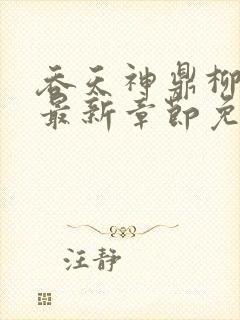 吞天神鼎柳
最新章节免
汪静